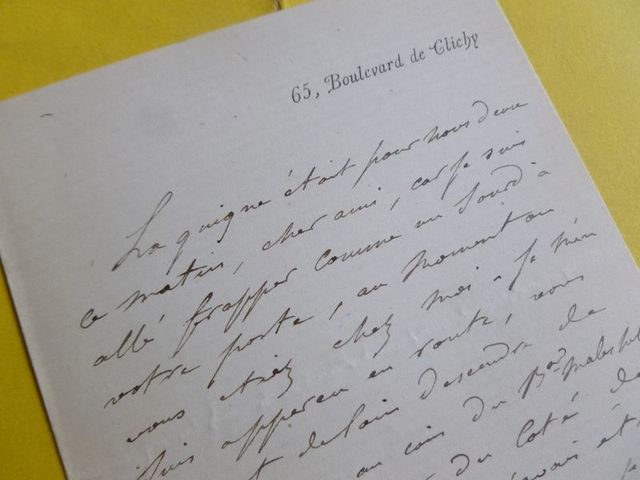 65, Boulevard de Clichy
La guigne était pour nous deux
ce matin, cher ami, car je suis
allé frapper comme un sourd à
votre porte, au moment où
vous étiez chez moi - Je m'en
suis apperçu en route, vous
de loin descendre de
au coin du Bard Malesh
du coté de